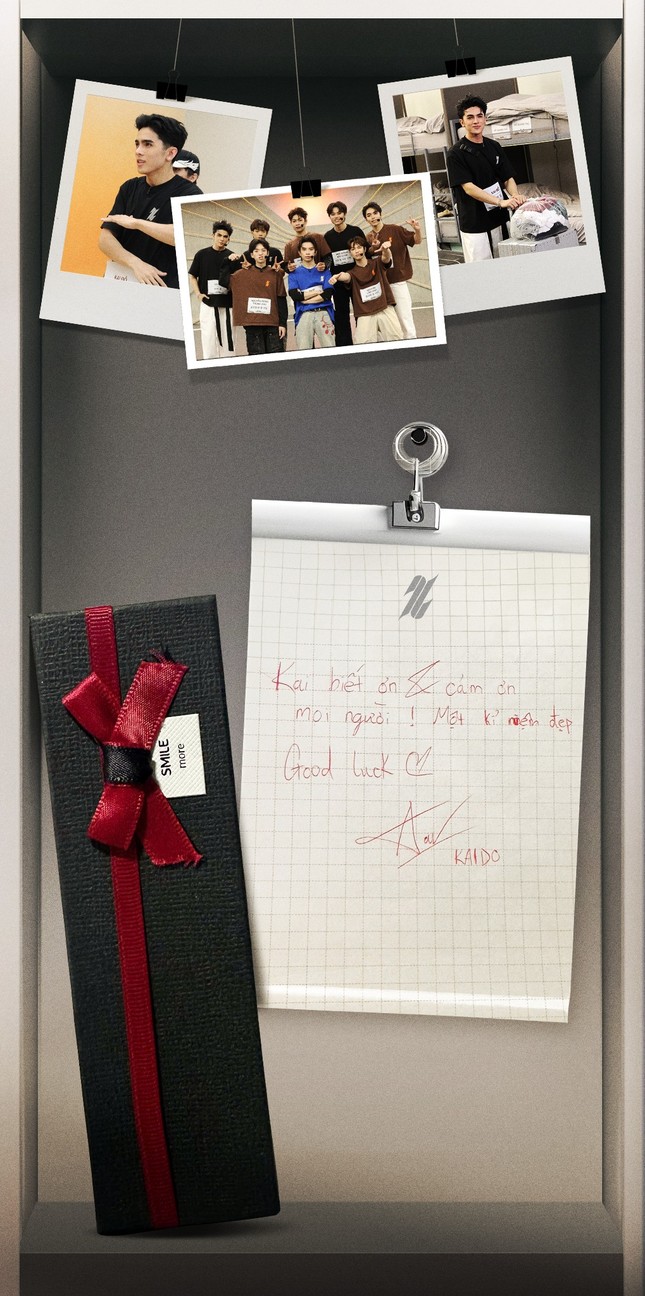 Kai biết ơn & cám ơn
mọi người ! Một kỉ niệm đẹp
Good luck
KAIDO
SMILE
more